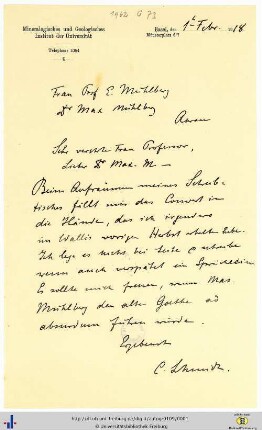 1962 G 73
Mineralogisches und Geologisches
Institut der Universität
Telephon 1094
Basel, den 1t Febr. 1918
Münsterplatz
Frau Prof E. Mühlberg
Dr Max Mühlberg
Aarau
Sehr verehrte Frau Professor,
Lieber Dr Max. M –
Beim Aufräumen meines Schreib-
tisches fällt mir das Couvert in
die Hände, das ich irgendwo
im Wallis vorigen Herbst erhalten habe.
Ich lege es hier bei
wenn auch verspätet ein
Es sollte mich freuen, wenn Max
Mühlberg den alte Goethe ad
absurdum führen würde.
Ergebenst
C. Schmidt.
© Universitätsbibliothek Freiburg